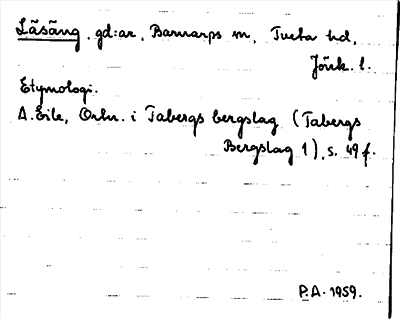 Läsäng. gd:ar, Barnarps sn, Tveta hd,
Jönk. l.
Etymologi.
A. Ejle, Ortn. i Tabergs bergslag (Tabergs
Bergslag 1), s. 49 f.
P.A. 1959.